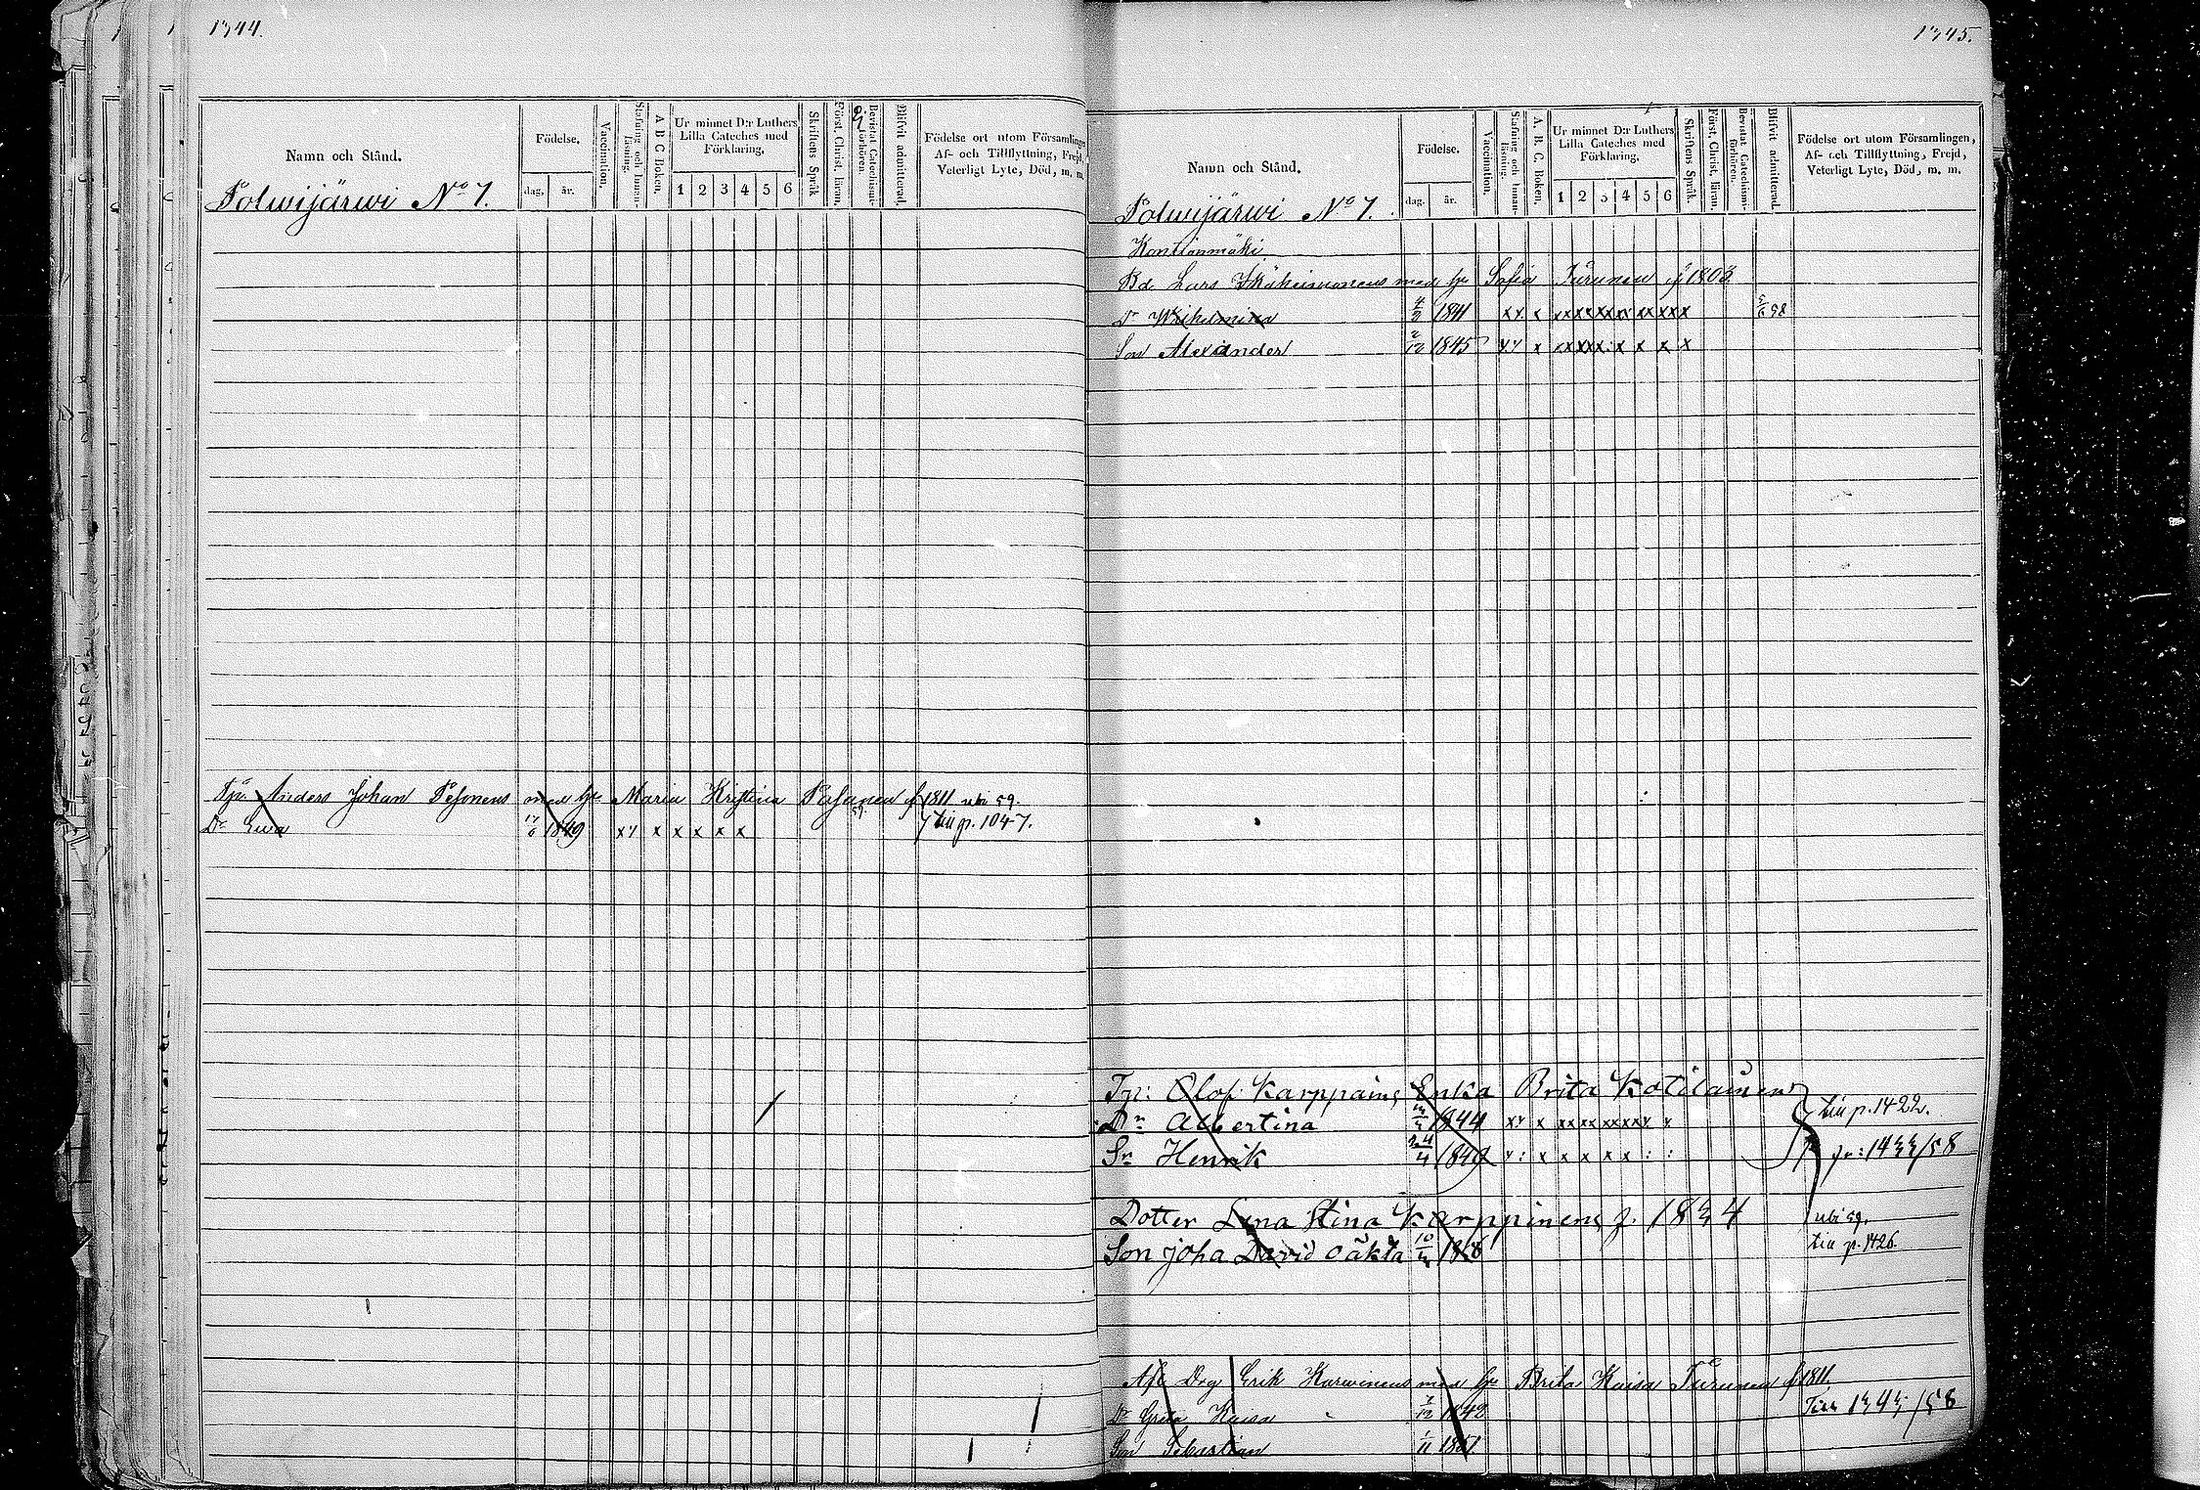 1344.
Namn och Stånd.
Födelse.
dag, år.
Vaccination.
Stafning och Innanläsning.
A B C Boken.
Ur minnet D:r Luthers Lilla Cateches med Förklaring.
1 2 3 4 5 6
Skriftens Språk
Först. Christ. läran.
Bevistat Catechismiförhören.
Blifvit admitterad.
Födelse ort utom Församlingen,
Af- och Tillflyttning, Frejd,
Veterligt Lyte, Död, m. m.
Polwijärwi No 7.
Anders Johan Pesonens med hu Maria Kristina f 1811 ubi 59.
Dr Ewa 17/6 1849 xy x x x x x till p. 1047.
1345.
Namn och Stånd.
Födelse.
dag, år.
Vaccination.
Stafning och Innanläsning.
A. B. C. Boken.
Ur minnet D:r Luthers Lilla Cateches med Förklaring.
1 2 3 4 5 6
Skriftens Språk.
Först. Christ. läran.
Bevistat Catechismiförhören.
Blifvit admitterad.
Födelse ort utom Församlingen,
Af- och Tillflyttning, Frejd,
Veterligt Lyte, Död, m. m.
Polwijärwi No 7.
Kontianmäki.
Bd. Lars med hu Sofia Turunen f 1803
Dr Wilhelmina 1841 xx x xx xx xx xx xx xx x
Son Alexander 2/12 1845 xy x x x x x
Olof Karppains Enka Brita Kotilainen
Dr Albertina 1844 xy x till p. 1422.
Sr Henrik 24/4 1849 x x x x x
Dotter Lena Stina Karppinens f. 1834 ubi 59.
Son joha David oäkta 10/ 1856 till p. 1426.
Erik Karwinens med hu Brita Kaisa Turunen f 1811.
Dr Greta Kaisa 7/12 1842
Son Sebastian 1/11 1851